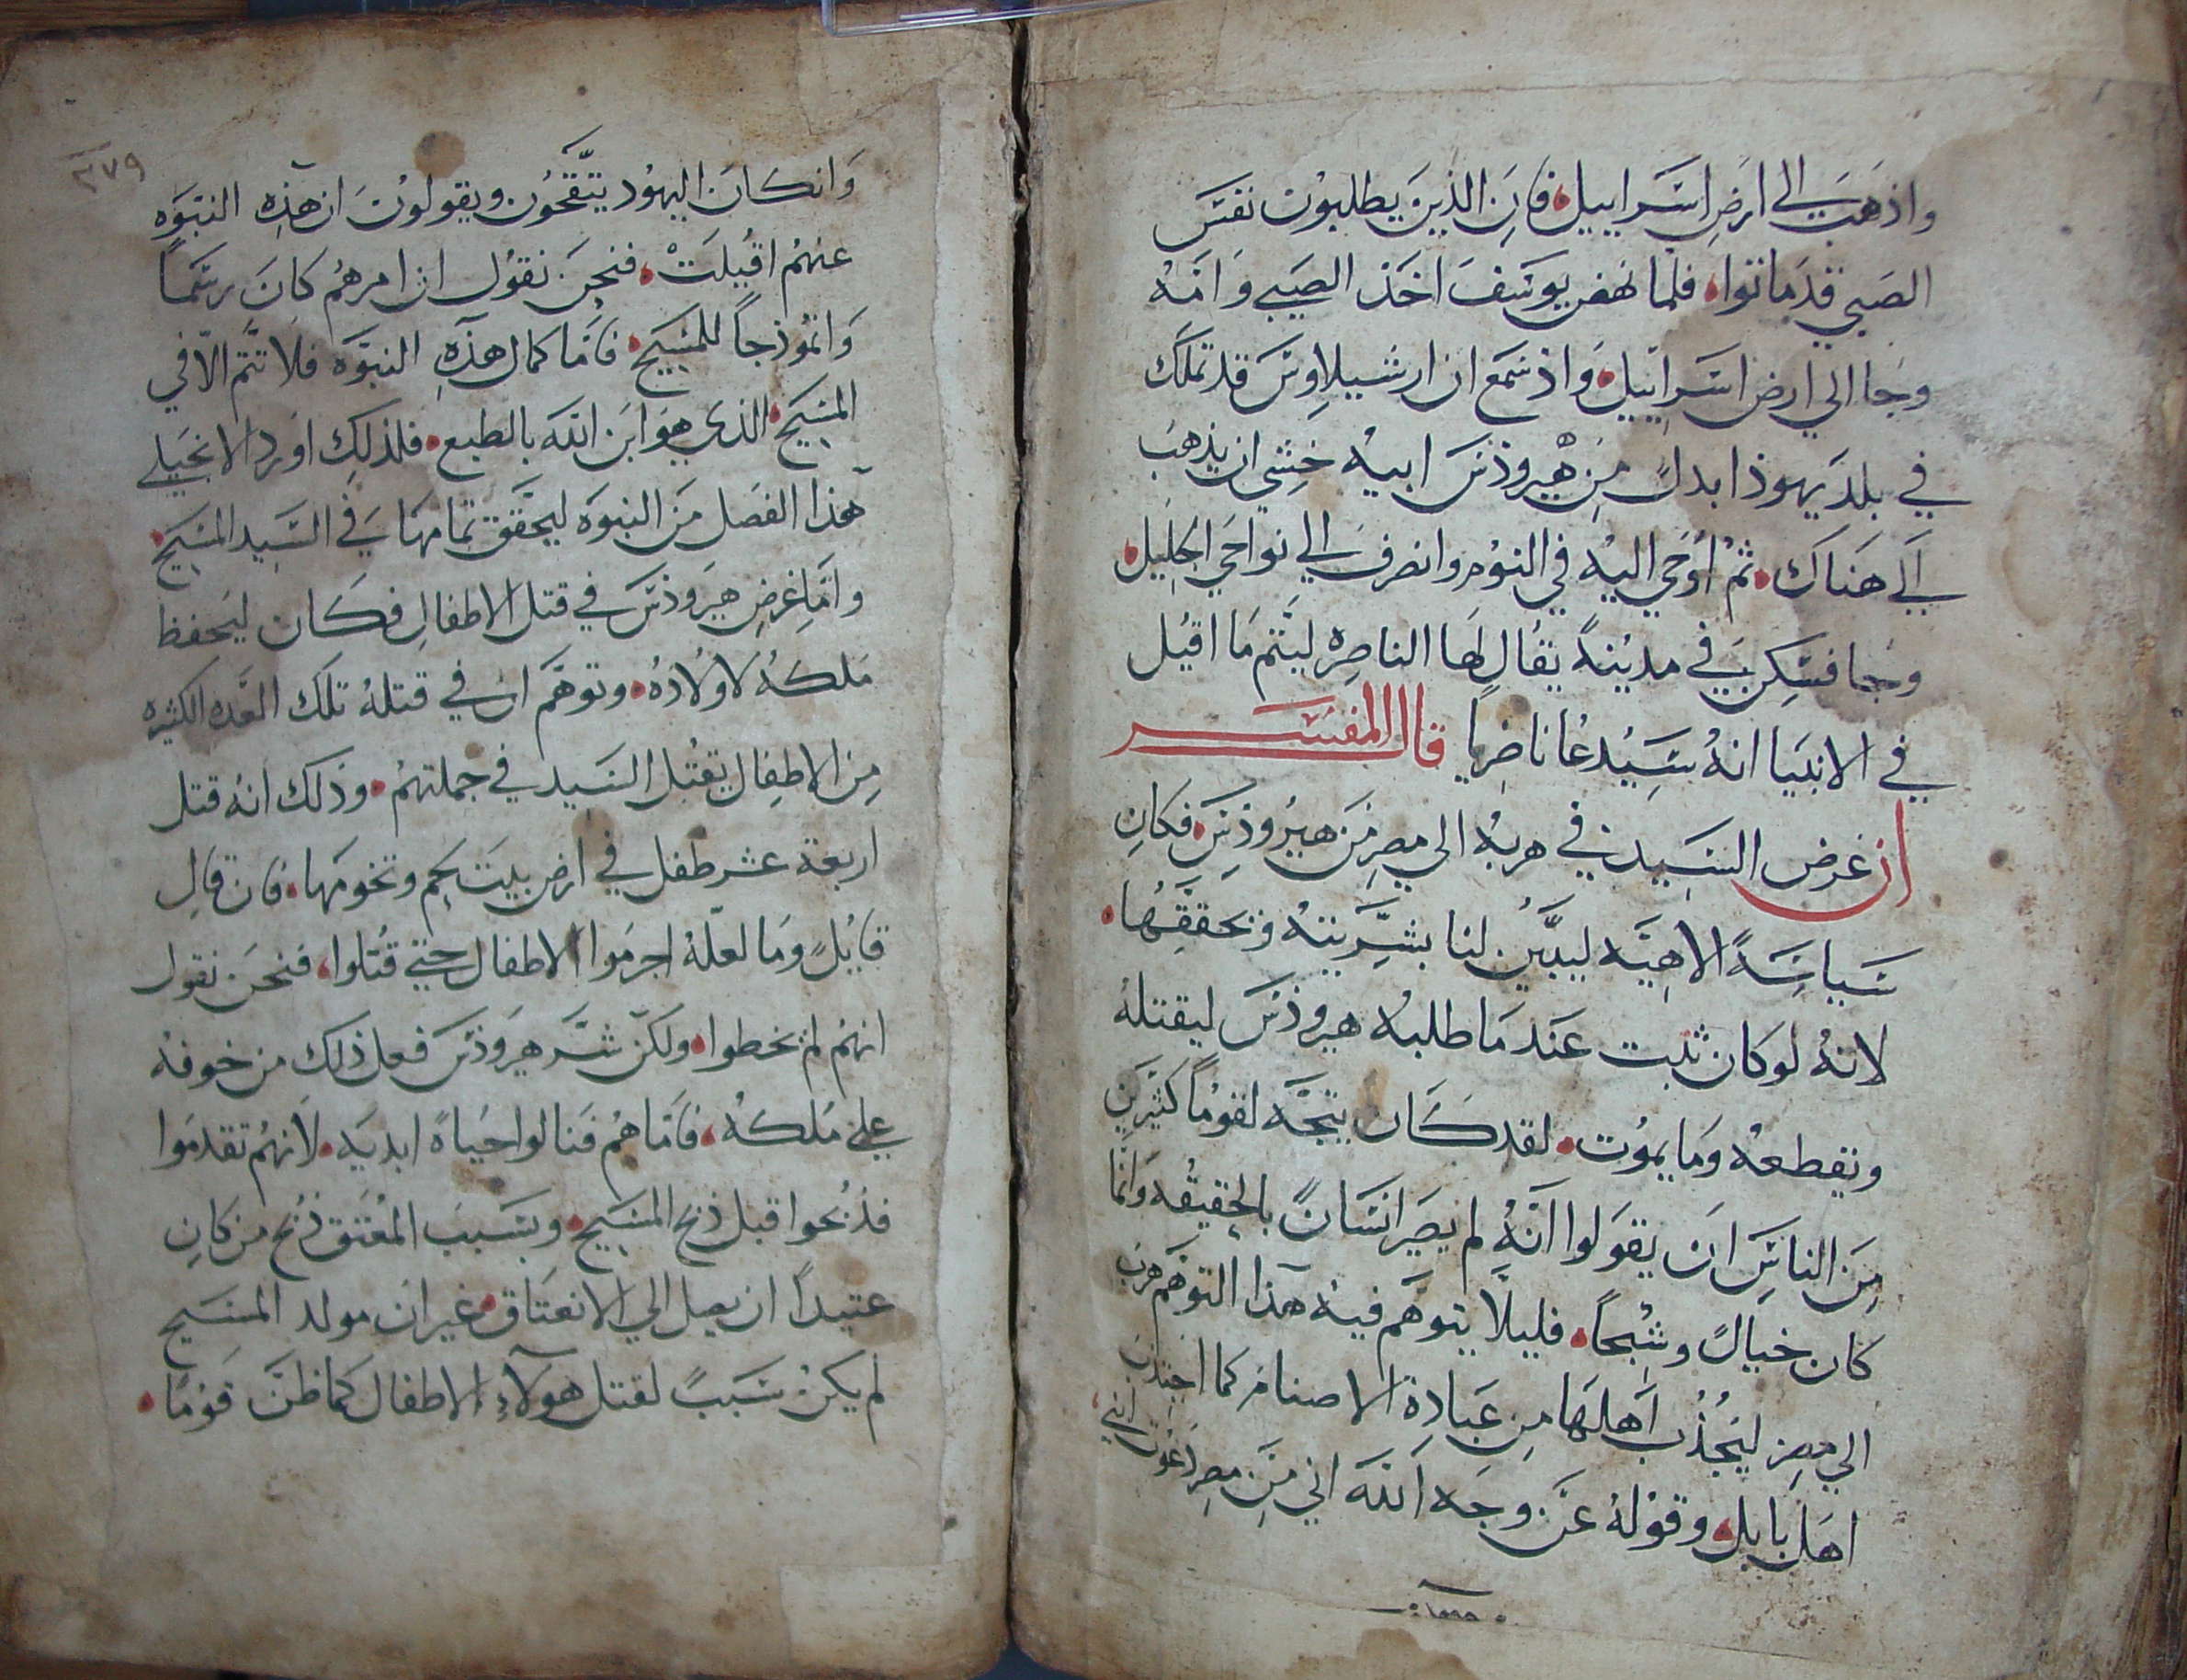 واذهب الي ارض اسراييل فان الذين يطلبون نفس
الصبي قد ماتوا، فلما نهض يوسف اخذ الصبي وامه
وجا الي ارض اسراييل واذ سمع ان ارشيلاوس قد تملك
في بلد يهوذا بدلً من هيروذس ابيه خشي ان يذهب
الي هناك ثم اوحي اليه في النوم وانصرف الي نواحي الجليل
وجا فسكن في مدينة يقال لها الناصره ليتم ما اقيل
في الانبيا انه سيدعا ناصريا قال المفسر
ان غرض السيد في هربه الي مصر من هيروذس فكان
سياسةً الاهيه ليبين لنا بشريته وتحققها
لانه لو كان ثبت عند ما طلبه هيروذس ليقتله
ويقطعه وما يموت لقد كان يتجه لقومًا كثيرين
من الناس ان يقولوا انه لم يصير انسانً بالحقيقه وانما
كان خيالً وشبحاً فليلا يتوهم فيه هذا التوهم هرب
الي مصر ليجذب اهلها من عبادة الاصنام كما اجتذب
اهل بابل وقوله عن وجه الله اني من مصر دعوت ابني
٣٧٩
وانكان اليهود يتقحون ويقولون ان هذه النبوه
عنهم اقيلت، فنحن نقول ان امرهم كان رسماً
وانموذجاً للمسيح فاما كمال هذه النبوه فلا تتم الا في
المسيح الذي هو ابن الله بالطبع فلذلك اورد الانجيلي
هذا الفصل من النبوه ليحقق تمامها في السيد المسيح
واما غرض هيروذس في قتل الاطفال فكان ليحفظ
ملكه لاولاده وتوهم ان في قتله تلك العده الكثيره
من الاطفال يقتل السيد في جملتهم وذلك انه قتل
اربعة عشر طفل في ارض بيت لحم وتخومها فان قال
قايلً وما لعله اجرموا الاطفال حتي قتلوا، فنحن نقول
انهم لم يخطوا ولكن شر هيروذس فعل ذلك من خوفه
علي ملكه، فاما هم فنالوا حياةً ابديه لانهم تقدموا
فذبحوا قبل ذبح المسيح وبسبب المعتق ذبح من كان
عتيداً ان يصل الي الانعتاق غير ان مولد المسيح
لم يكن سببً لقتل هولاء الاطفال كما ظن قومًا